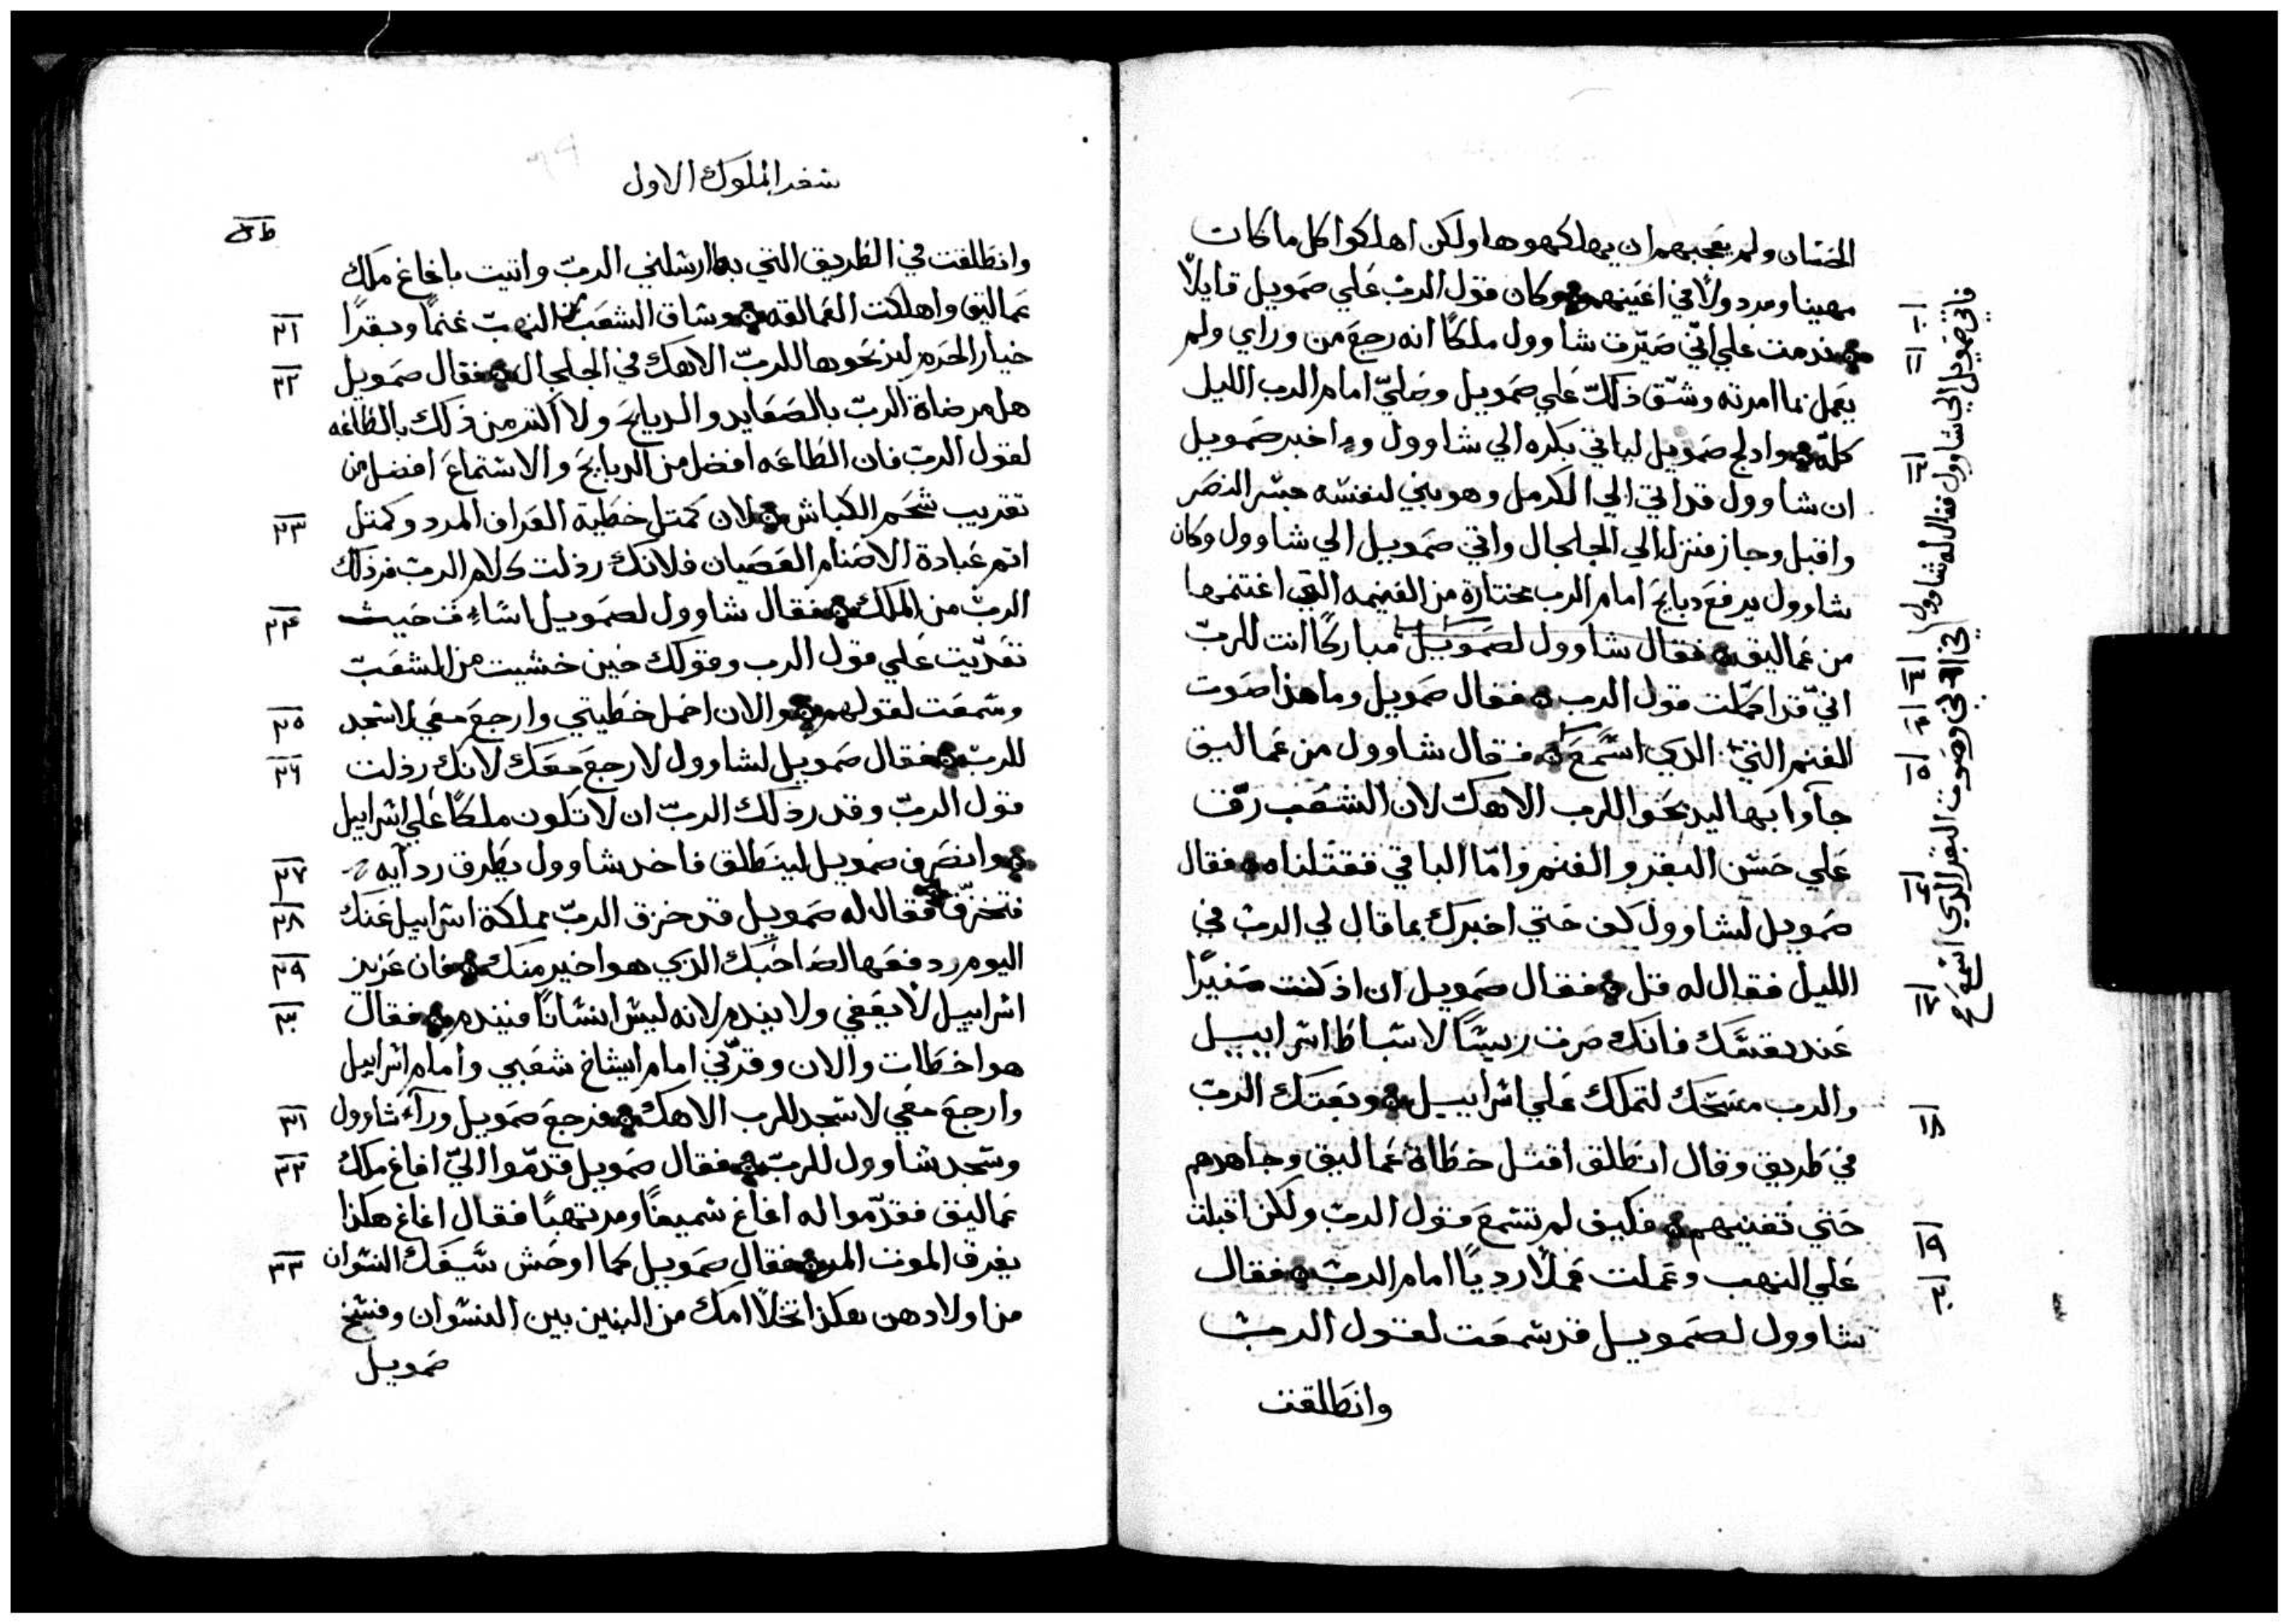 الحسان ولم يعجبهم ان يهلكهوها ولكن اهلكوا كل ما كان
مهينا ومردولاً في اعينهم وكان قول الرب علي صمويل قايلاً
ندمت علي اني صيرت شاوول ملكاً انه رجع من وراي ولم
يعمل بما امرته وشق ذلك علي صمويل وصلي امام الرب الليل
كله وادلج صمويل لياتي بكره الي شاوول واخبر صمويل
ان شاوول قد اتي الي الكرمل وهو يبني لنفسه جسر النصر
واقبل وجاز فنزل الي الجلجال واتي صمويل الي شاوول وكان
شاوول يرفع دبايح امام الرب مختارة من الغنيمه التي اغتنمها
من عماليق فقال شاوول لصمويل مباركاً انت للرب
اني قد اكملت قول الرب فقال صمويل وما هذا صوت
الغنم التي الدي اسمع فقال شاوول من عماليق
جآوا بها ليدبحوا للرب الاهك لان الشعب رق
علي حسن البقر والغنم واما الباقي فقتلناه فقال
صمويل لشاوول كف حتي اخبرك بما قال لي الرب في
الليل فقال له قل فقال صمويل ان اذ كنت صغيراً
عند نفسك فانك صرت ريساً لاسباط اسراييل
والرب مسحك لتملك علي اسراييل وبعتك الرب
في طريق وقال انطلق اقتل خطاة عماليق وجاهدهم
حتي تفنيهم فكيف لم تسمع قول الرب ولكن اقبلت
علي النهب وعملت عملاً ردياً امام الرب فقال
شاوول لصمويل قد سمعت لقول الرب
وانطلقت
فاتي صمويل الي شاوول فقال له شاوول
في ادني وصوت البقر الدي اسمع
١٠
١١
١٢
١٣
١٤
١٥
١٦
١٧
١٨
١٩
٢٠
سفر الملوك الاول
وانطلقت في الطريق التي بها ارسلني الرب واتيت باغاغ ملك
عماليق واهلكت العمالقه وساق الشعب من النهب غنماً وبقراً
خيار الحرم ليدبحوها للرب الاهك في الجلجال فقال صمويل
هل مرضاة الرب بالصعايد والدبايح ولا اكتر من ذلك بالطاعه
لقول الرب فان الطاعه افضل من الدبايح والاستماع افضل من
تقريب شحم الكباش لان كمتل خطية العراف المرد وكمتل
اتم عبادة الاصنام العصيان فلانك رذلت كلام الرب فرذلك
الرب من الملك فقال شاوول لصمويل اسات حيث
تعديت علي قول الرب وقولك حين خشيت من الشعب
وسمعت لقولهم والان احمل خطيتي وارجع معي لاسجد
للرب فقال صمويل لشاوول لا ارجع معك لانك رذلت
قول الرب وقد رذلك الرب ان لا تكون ملكاً علي اسراييل
وانصرف صمويل لينطلق فاخد شاوول بطرف ردآيه
فتخزق فقال له صمويل قد خزق الرب مملكة اسراييل عنك
اليوم ودفعها لصاحبك الذي هو اخير منك فان عزيز
اسراييل لا يعفي ولا يندم لانه ليس انساناً فيندم فقال
هو اخطات والان وقرني امام اشياخ شعبي وامام اسراييل
وارجع معي لاسجد للرب الاهك فرجع صمويل ورآء شاوول
وسجد شاوول للرب فقال صمويل قدموا الي اغاغ ملك
عماليق فقدموا له اغاغ سميناً ومرتهباً فقال اغاغ هكذا
يفرق الموت المر فقال صمويل كما اوحش سيفك النسوان
من اولادهن هكذا تخلا امك من البنين بين النسوان وفسخ
صمويل
٢١
٢٢
٢٣
٢٤
٢٥
٢٦
٢٧
٢٨
٢٩
٣٠
٣١
٣٢
٣٣